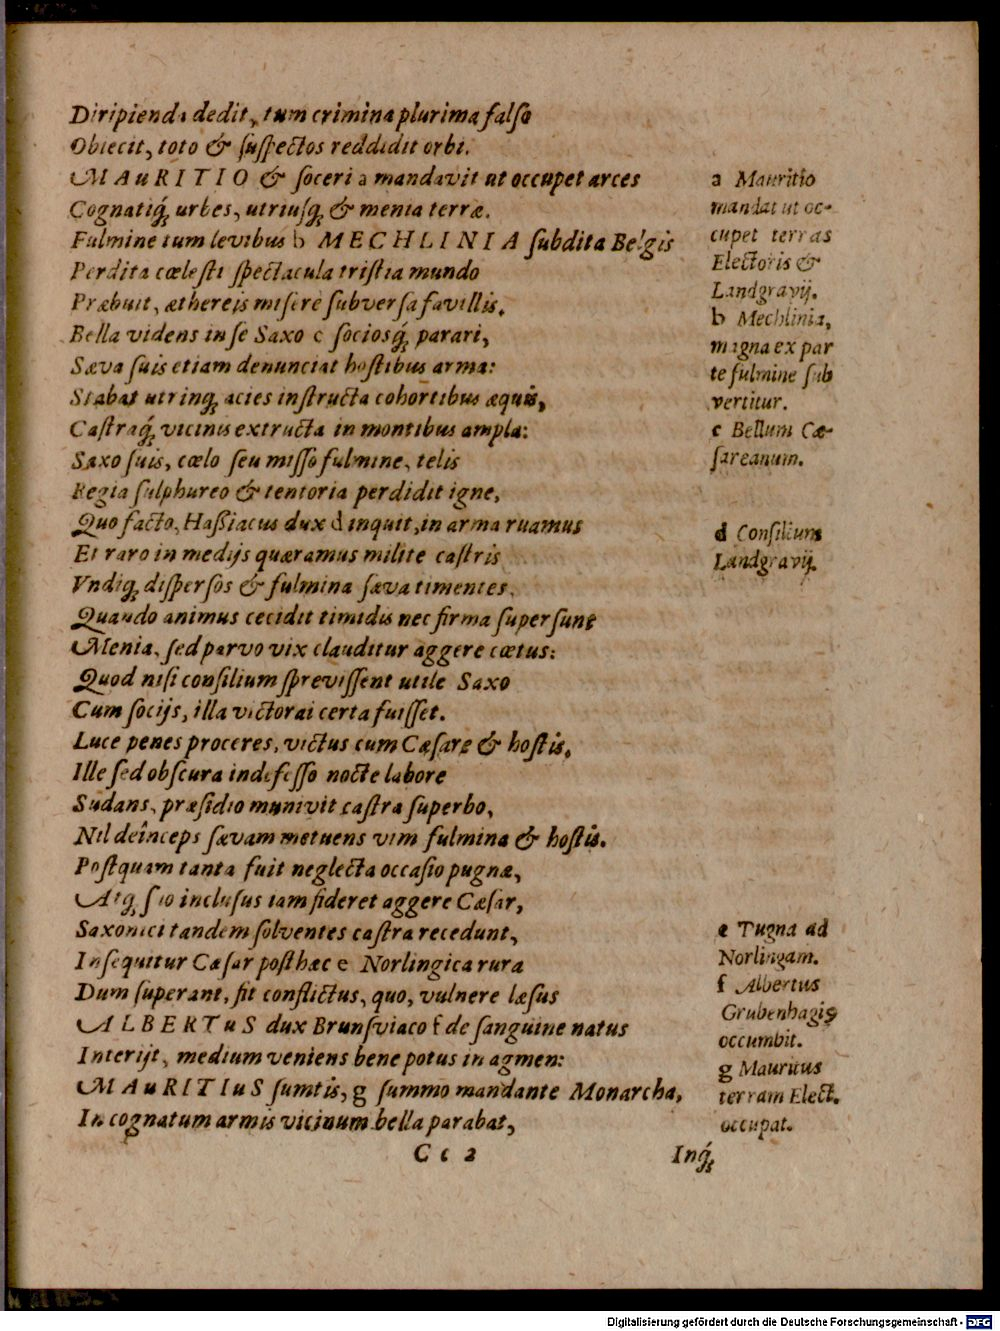 Diripienda dedit, tum crimina plurima falſo
Obiecit, toto & ſuſpectos reddidit orbi.
MAuRITIO & ſoceri a mandavit ut occupet arces
Cognatiq́; urbes, utriuſq́; & menia terræ.
Fulmine tum levibus b MECHLINIA ſubdita Belgis
Perdita cœleſti ſpectacula triſtia mundo
Præbuit, æthereis miſerè ſubverſa favillis.
Bella videns in ſe Saxo c ſociosq́; parari,
Sæva ſuis etiam denunciat hoſtibus arma:
Stabat utrinq; acies inſtructa cohortibus æquis,
Caſtraq́; vicinis extructa in montibus ampla:
Saxo ſuis, cœlo ſeu miſſo fulmine, telis
Regia ſulphureo & tentoria perdidit igne,
Quo facto, Haßiacus dux d inquit, in arma ruamus
Et raro in medijs quæramus milite caſtris
Vndiq; diſperſos & fulmina ſæva timentes.
Quando animus cecidit timidis nec firma ſuperſunt
Menia, ſed parvo vix clauditur aggere cœtus:
Quod niſi conſilium ſpreviſſent utile Saxo
Cum ſocijs, illa victorai certa fuiſſet.
Luce penes proceres, victus cum Cæſare & hoſtis,
Ille ſed obſcura indefeſſo nocte labore
Sudans, præſidio munivit caſtra ſuperbo,
Nil deînceps ſævam metuens vim fulmina & hoſtis.
Poſtquam tanta fuit neglecta occaſio pugnæ,
Atq; ſuo incluſus iam fideret aggere Cæſar,
Saxonici tandem ſolventes caſtra recedunt,
Inſequitur Cæſar poſthæc e Norlingica rura
Dum ſuperant, fit conflictus, quo, vulnere læſus
ALBERTuS dux Brunſviaco f de ſanguine natus
Interijt, medium veniens bene potus in agmen:
MAuRITIuS ſumtis, g ſummo mandante Monarcha,
In cognatum armis vicinum bella parabat,
Cc 2
Inq́;
a Mauritio
mandat ut oc-
cupet terras
Electoris &
Landgravij.
b Mechlinia,
magna ex par
te fulmine ſub
vertitur.
c Bellum Cæ-
ſareanum.
d Conſilium
Landgravij.
e Pugna ad
Norlingam.
f Albertus
Grubenhagis
occumbit.
g Mauritus
terram Elect.
occupat.
Digitalisierung gefördert durch die Deutsche Forschungsgemeinschaft - DFG